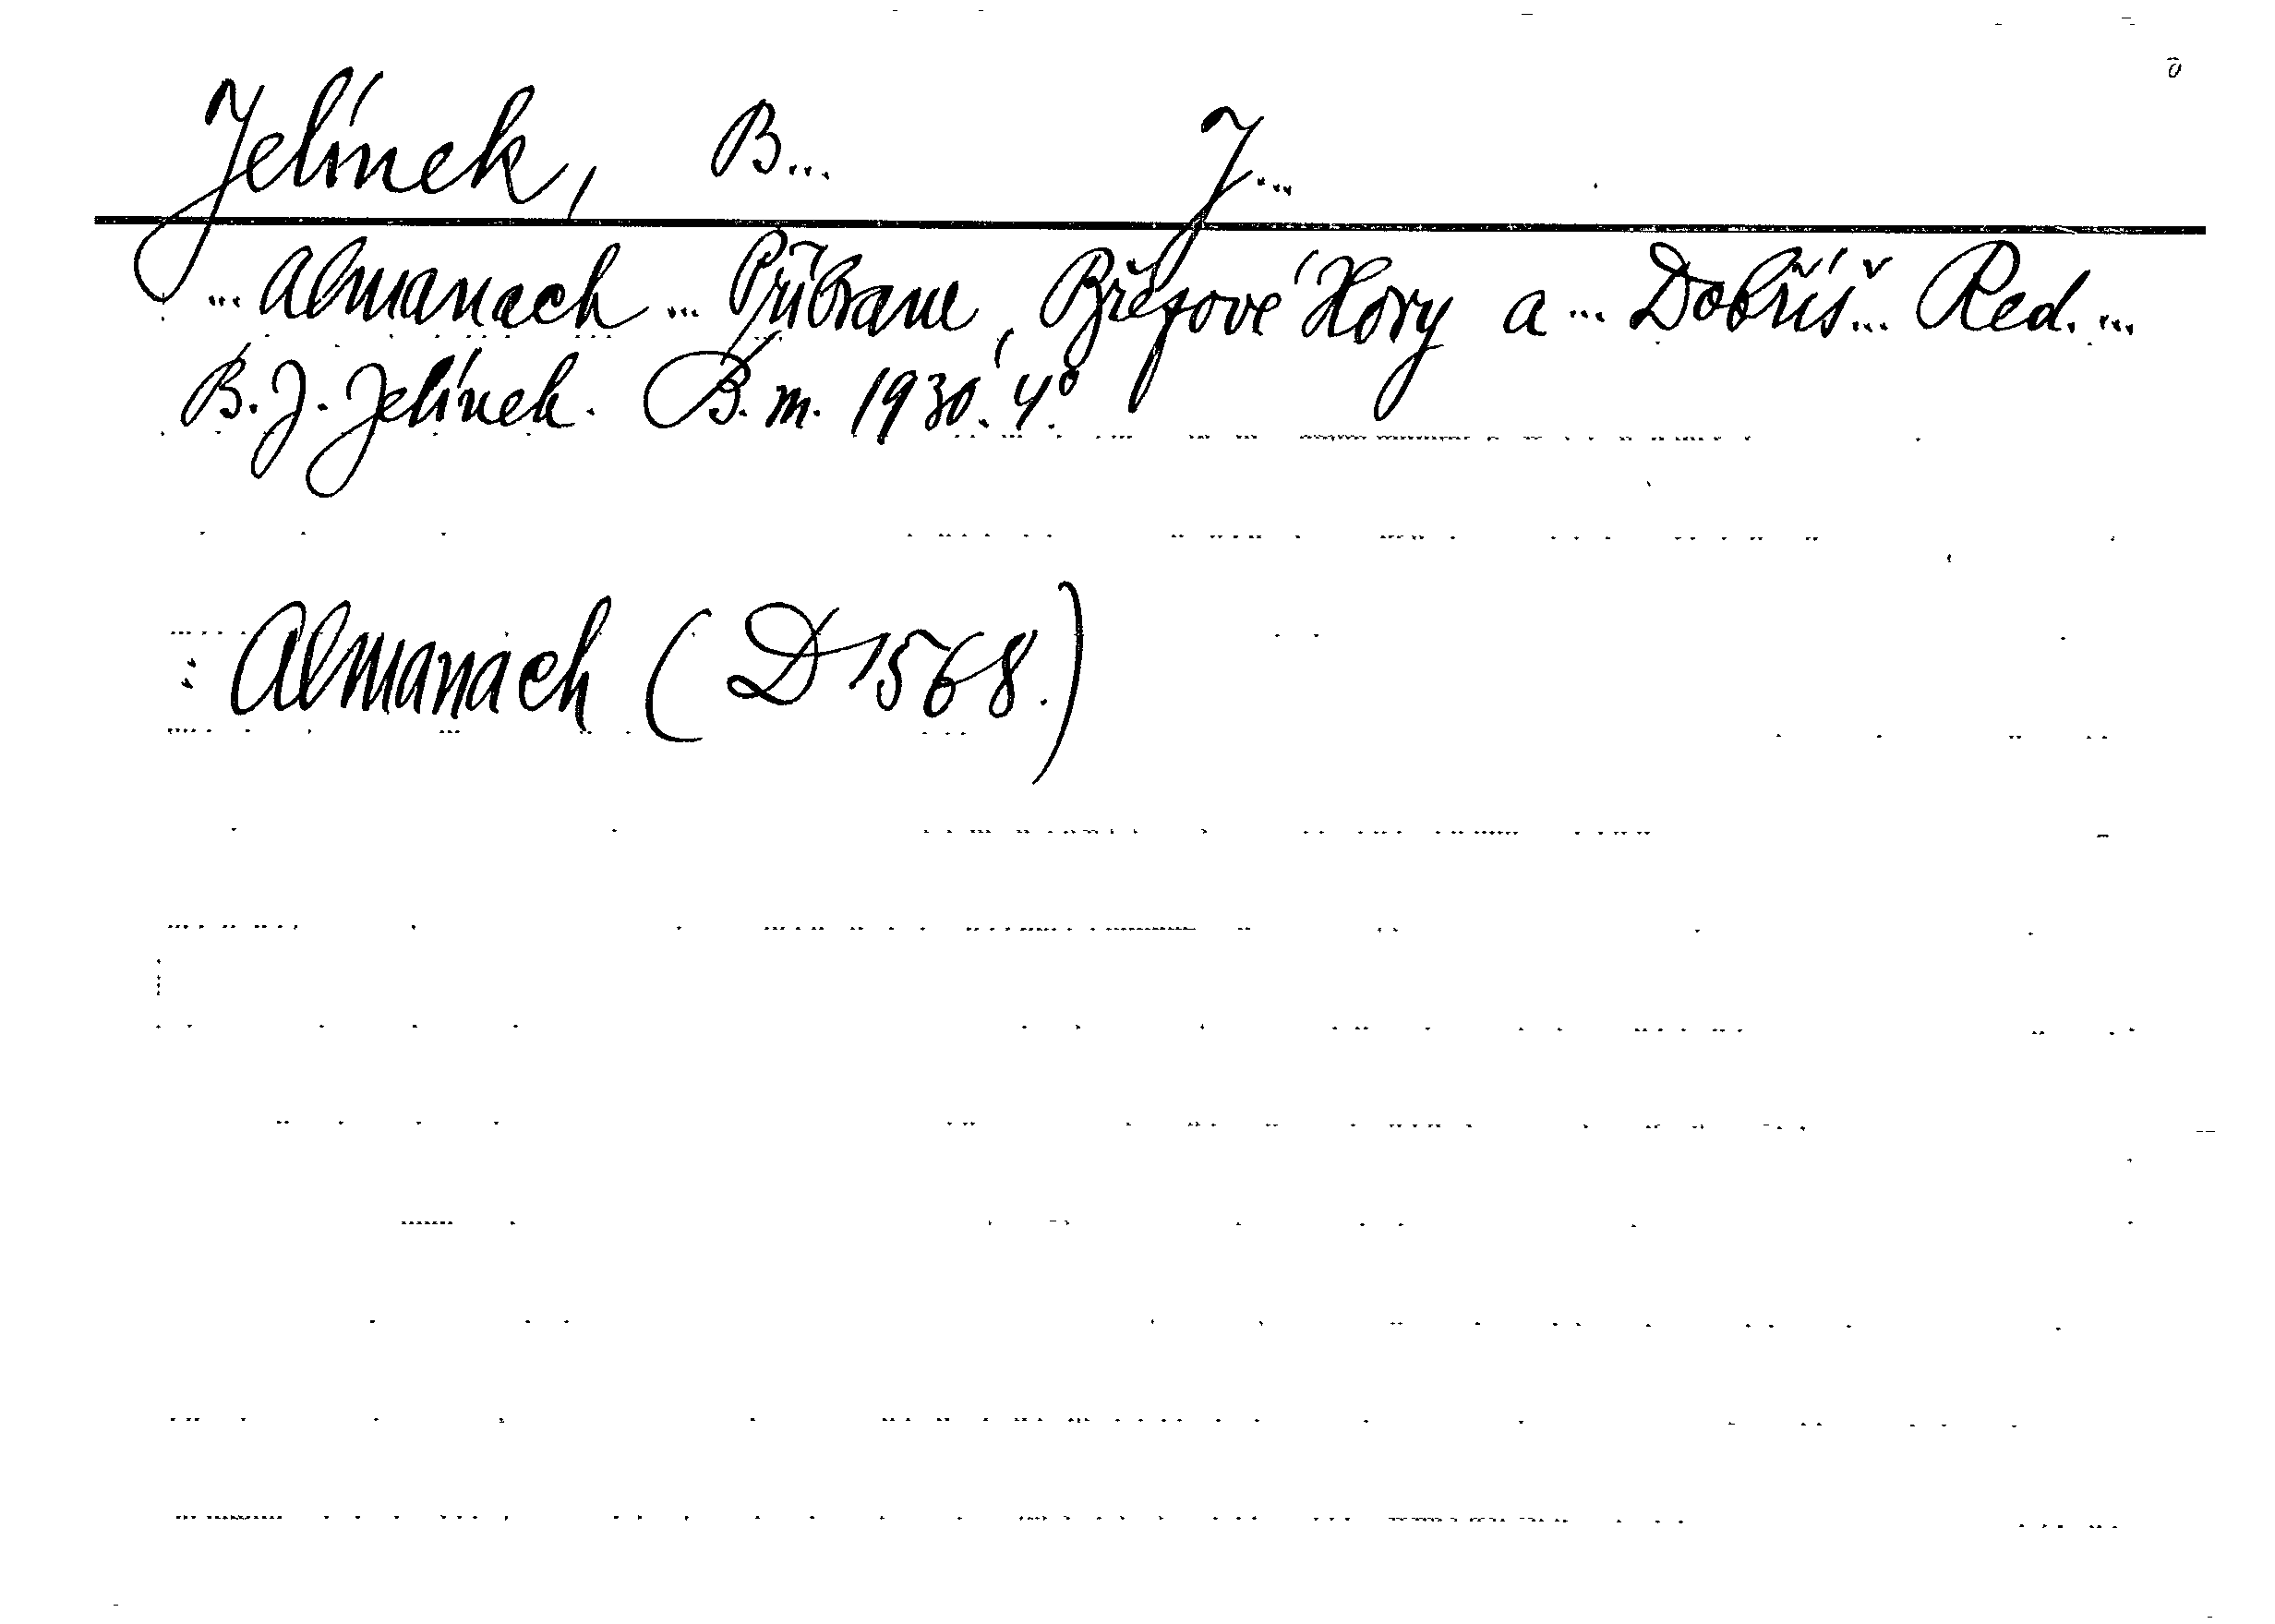 Jelínek, B... J...
... Almanach ... Příbrame, Březové Hory a ... Dobříš... Red. ...
B. J. Jelínek. B. m. 1930. 4°.
: Almanach (D 1568.)